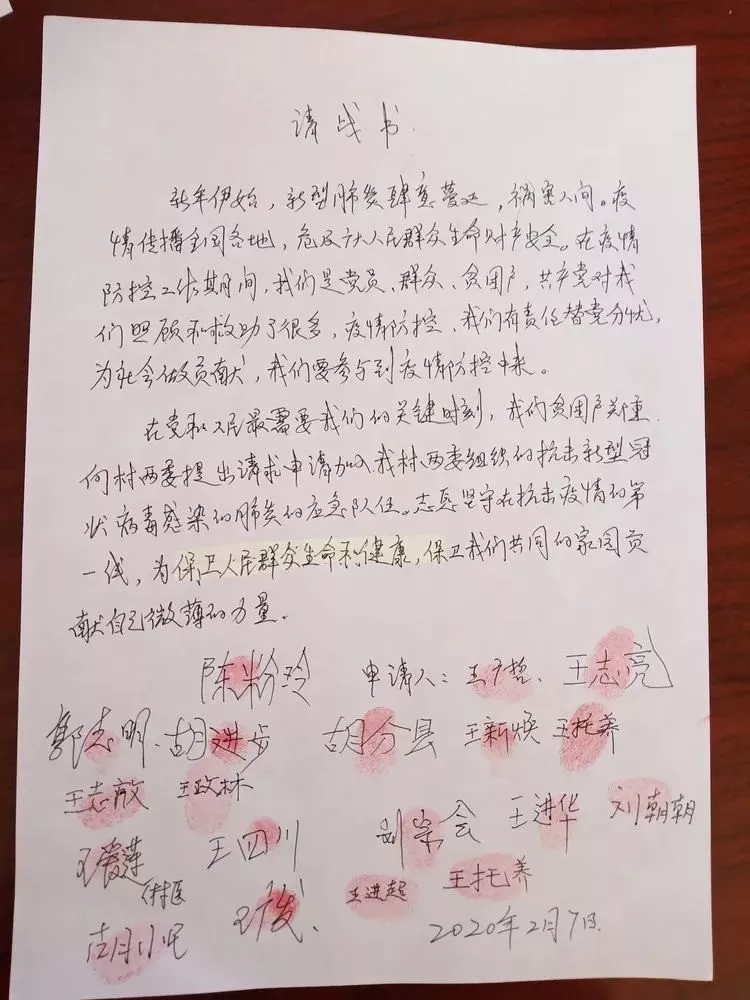 请战书
新年伊始，新型肺炎肆意蔓延，祸害人间。疫
情传播全国各地，危及广大人民群众生命财产安全。在疫情
防控工作期间，我们是党员、群众、贫困户，共产党对我
们照顾和救助了很多，疫情防控，我们有责任替党分忧，
为社会做贡献，我们要参与到疫情防控中来。
在党和人民最需要我们的关键时刻，我们贫困户郑重
向村两委提出请求申请加入我村两委组织的抗击新型冠
状病毒感染的肺炎的应急队伍。志愿坚守在抗击疫情的第
一线，为保卫人民群众生命和健康，保卫我们共同的家园贡
献自己微薄的力量。
陈粉玲 申请人：王广哲 王志亮
郭志明 胡进步 胡分县 王新焕 王托养
王志敏 王政林
王爱萍 王四川 刘宗会 王进华 刘朝朝
村医
胡小 王广发 王进超 王托养
2020年2月7日